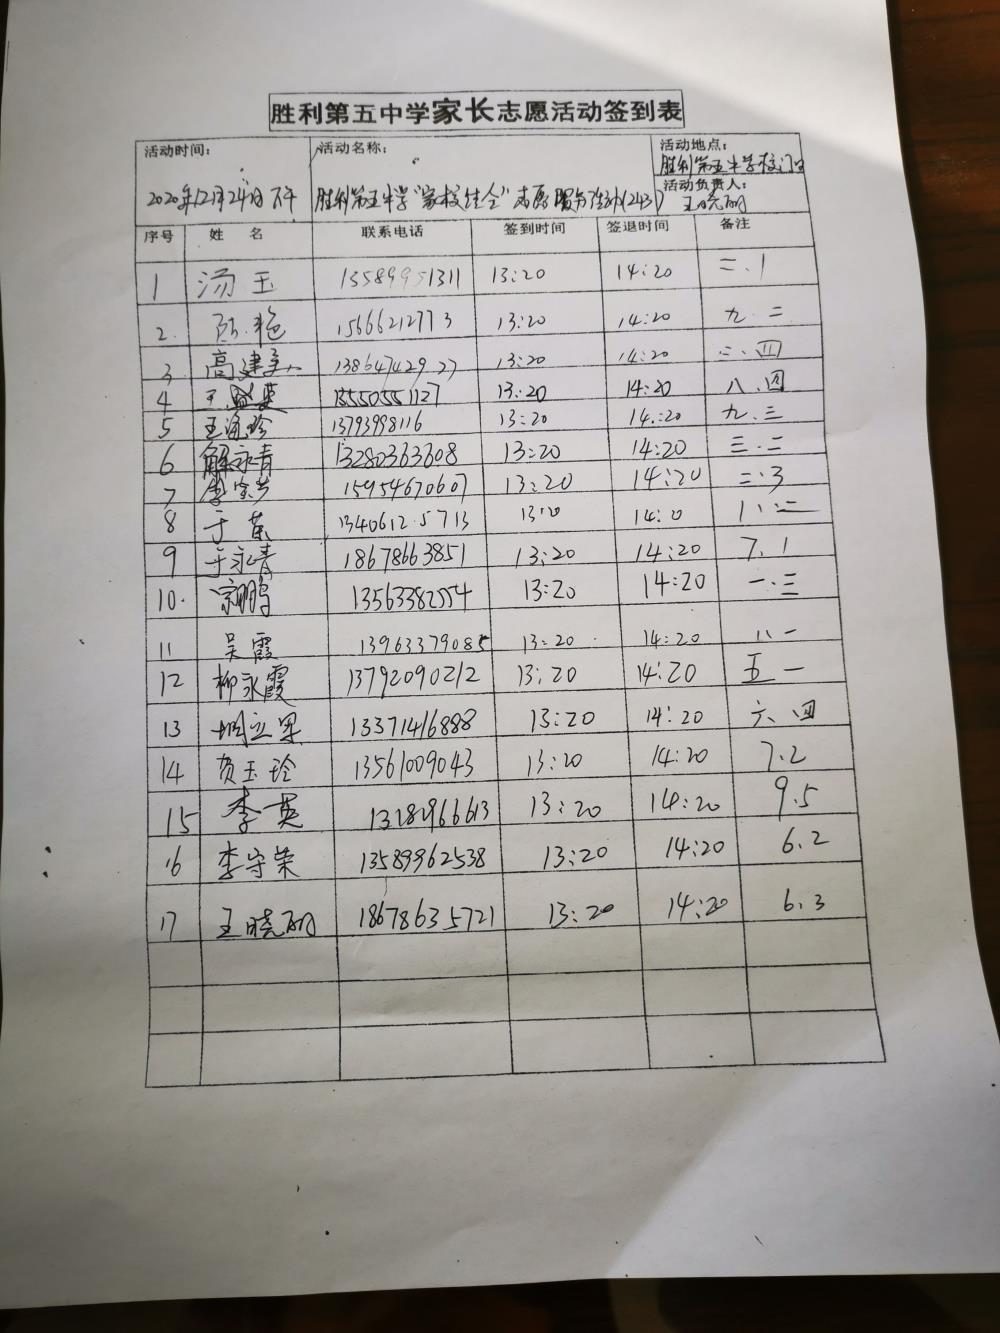 胜利第五中学家长志愿活动签到表
活动时间： 活动名称： 活动地点：
胜利第五中学校门口
2020年12月24日下午 胜利第五中学“家校结合”志愿服务活动(243) 活动负责人：
王晓丽
序号 姓名 联系电话 签到时间 签退时间 备注
1 汤玉 13589951311 13:20 14:20 二.1
2. 陈艳 15666212773 13:20 14:20 九.二
3 高建美 13864742927 13:20 14:20 二.四
4 王 13550551127 13:20 14:20 八.四
5 王 珍 13793998116 13:20 14:20 九.三
6 解永青 13280363608 13:20 14:20 三.二
7 李宝 15954670607 13:20 14:20 二.3
8 于 13406125713 13:20 14:0 八.二
9 于永青 18678663851 13:20 14:20 7.1
10. 宗鹏 13563382554 13:20 14:20 一.三
11 吴霞 13963379085 13:20 14:20 八一
12 柳永霞 13792090212 13:20 14:20 五一
13 周立 13371416888 13:20 14:20 六.四
14 贺玉玲 13561009043 13:20 14:20 7.2
15 李英 13282966613 13:20 14:20 9.5
16 李守荣 13589962538 13:20 14:20 6.2
17 王晓丽 18678635721 13:20 14:20 6.3